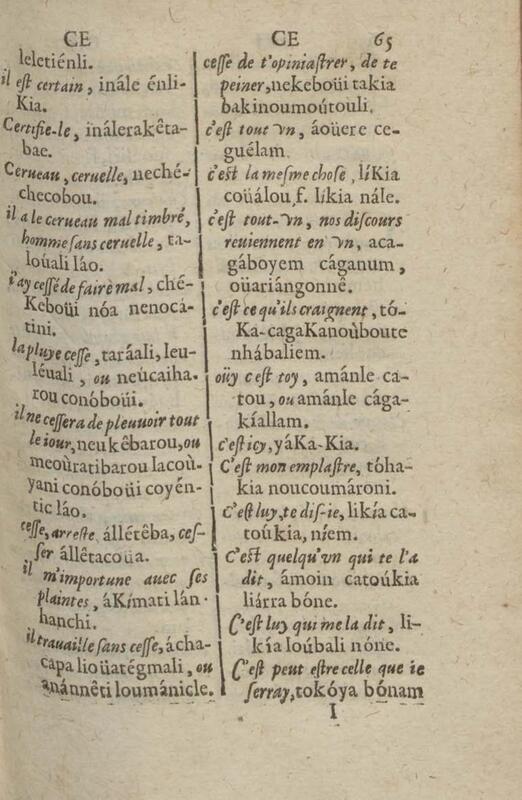 CE
leletiénli.
il eſt certain, inále énli-
Kia.
Certifie-le, inálerakêta-
bae.
Cerueau, ceruelle, neché-
checobou.
il a le cerueau mal timbré,
homme ſans ceruelle, ta-
loúali láo.
i'ay ceſſé de faire mal, ché-
Keboüi nóa nenocá-
tini.
la pluye ceſſe, taráali, leu-
léuali, ou neúcaiha-
rou conóboüi.
il ne ceſſera de pleuuoir tout
le iour, neu kêbarou, ou
meoùratibarou Iacoù-
yani conóboüi coyén-
tic láo.
ceſſe, arreſte állétêba, ceſ-
ſer állêtacoüa.
il m'importune auec ſes
plaintes, áKímati lán-
hanchi.
il trauaille ſans ceſſe, ácha-
capa lioüatégmali, ou
anánnêti loumánicle.
CE 65
ceſſe de t'opiniaſtrer, de te
peiner, nekeboüi takia
bakinoumoútouli.
c'eſt tout vn, áoüere ce-
guélam.
c'eſt la meſme choſe, líKia
coüálou, f. líkia nále.
c'eſt tout-vn, nos diſcours
reuiennent en vn, aca-
gáboyem cáganum,
oüariángonnê.
c'eſt ce qu'ils craignent, tó-
Ka-cagaKanoùboute
nhábaliem.
oüy c'eſt toy, amánle ca-
tou, ou amánle cága-
kíallam.
c'eſt icy, yáKa-Kia.
C'eſt mon emplaſtre, tóha-
kia noucoumároni.
C'eſt luy, te diſ-ie, likía ca-
toúkia, níem.
C'eſt quelqu'vn qui te l'a
dit, ámoin catoúkia
liárra bóne.
C'eſt luy qui me la dit, li-
kía loúbali nóne.
C'eſt peut eſtre celle que ie
ſerray, tokóya bónam
I